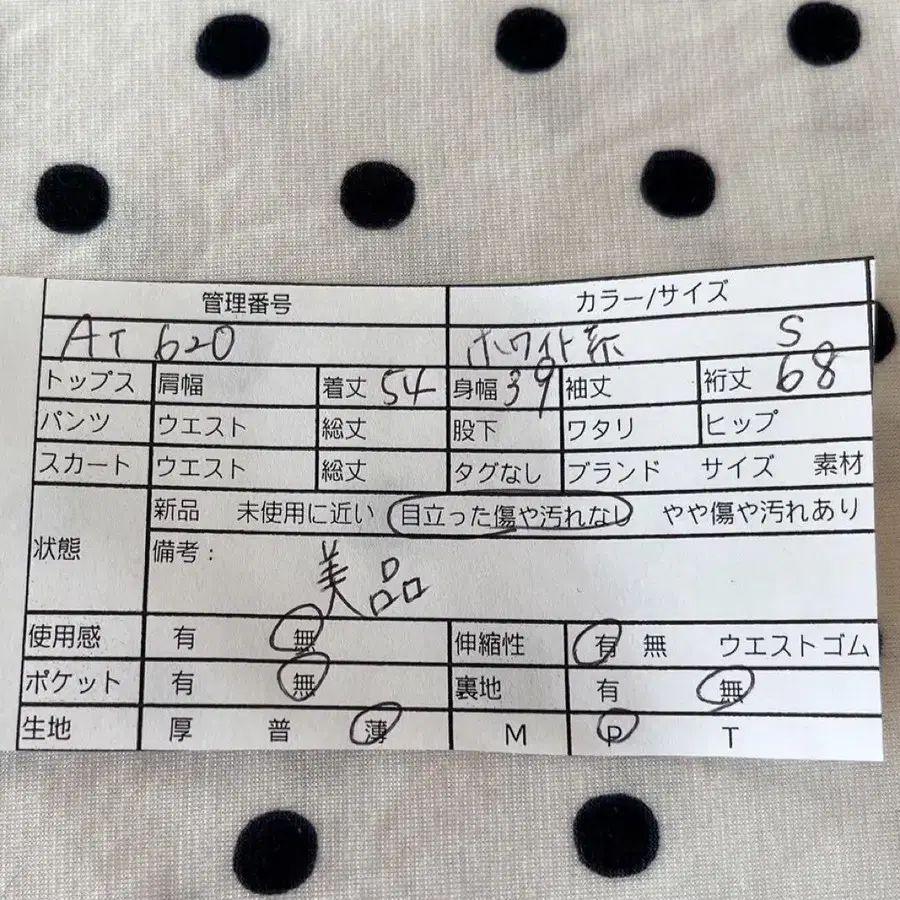 管理番号 カラー/サイズ
AT 620 ホワイト系 S
トップス 肩幅 着丈 54 身幅 39 袖丈 裄丈 68
パンツ ウエスト 総丈 股下 ワタリ ヒップ
スカート ウエスト 総丈 タグなし ブランド サイズ 素材
状態 新品 未使用に近い 目立った傷や汚れなし やや傷や汚れあり
備考： 美品
使用感 有 無 伸縮性 有 無 ウエストゴム
ポケット 有 無 裏地 有 無
生地 厚 普 薄 M P T